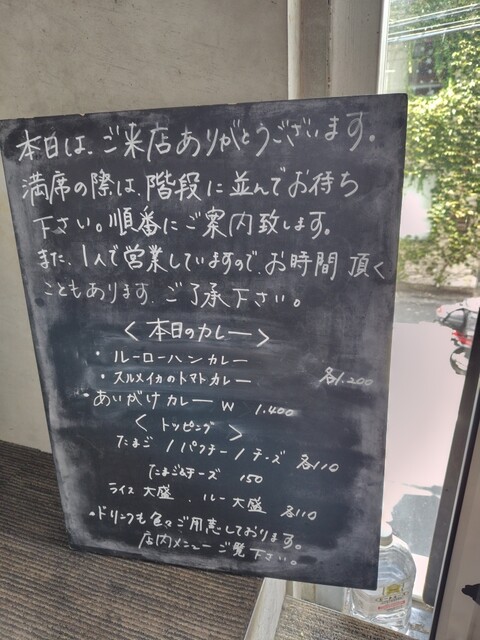 本日は、ご来店ありがとうございます。
満席の際は、階段に並んでお待ち
下さい。順番にご案内致します。
また、1人で営業していますので、お時間頂く
こともあります。ご了承下さい。
<本日のカレー>
・ルーローハンカレー
・スルメイカのトマトカレー 各1.200
・あいがけカレー W 1.400
<トッピング>
たまご / パクチー / チーズ 各110
たまご&チーズ 150
ライス大盛 . ルー大盛 各110
・ドリンクも色々ご用意しております。
店内メニューご覧下さい。